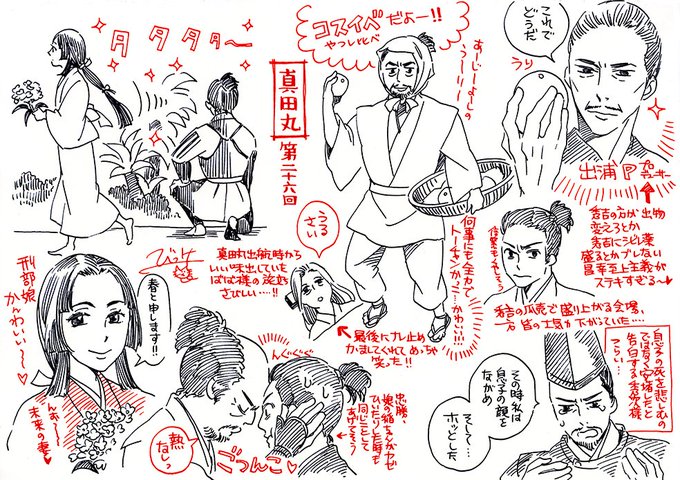 タタタタ〜
真田丸
第二十六回
コスイベだよー!!
やつしくらべ
あーじーよーしの
うーりーー
これで
どうだ
うり
出浦P
プロデューサー
秀吉の方が出物
変えるとか
秀吉にシビレ薬
盛るとかブレない
昌幸至上主義が
ステキすぎる〜
何事にも全力で
トーチャンかっ…かわいい!!!
秀吉の瓜売で盛り上がる会場、
方や皆の士気が下がっていた…。
うる
さい
最後にナレ止め
かましてくれてめっちゃ
笑った!!
真田丸出航時から
いい味出していた
ばば様の旅立ち
さびしい…!!
刑部娘
かんわいい〜〜
春と申します!!
んおー
未来の妻
んぐぐぐぐ
熱
なしっ
ごっつんこ
出勝、
娘の稲ちゃんがカゼ
ひいたりした時も
同じことして
あげてそう
息子の死を悲しむの
ではなく安堵したと
告白する秀次様
つらい…
その時私は
息子の顔を
ながめ
そして…
ホッとした